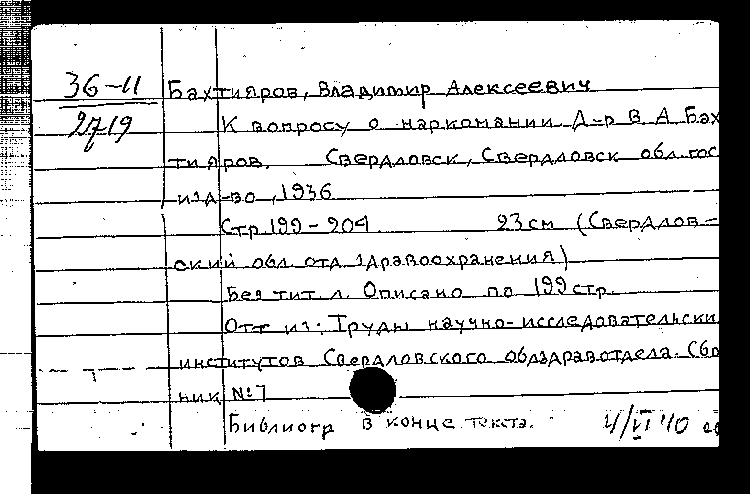 36-11
2719
Бахтияров, Владимир Алексеевич
К вопросу о наркомании Д-р В. А. Бах
тияров. Свердловск, Свердловск обл. гос
изд-во, 1936
Стр 199-204. 23 см (Свердлов-
ский обл. отд. здравоохранения)
Без тит. л. Описано по 199 стр.
Отт из: Труды научно-исследовательски
институтов Свердловского облздравотдела. Сбо
ник №7
Библиогр в конце текста.
4/VI 40